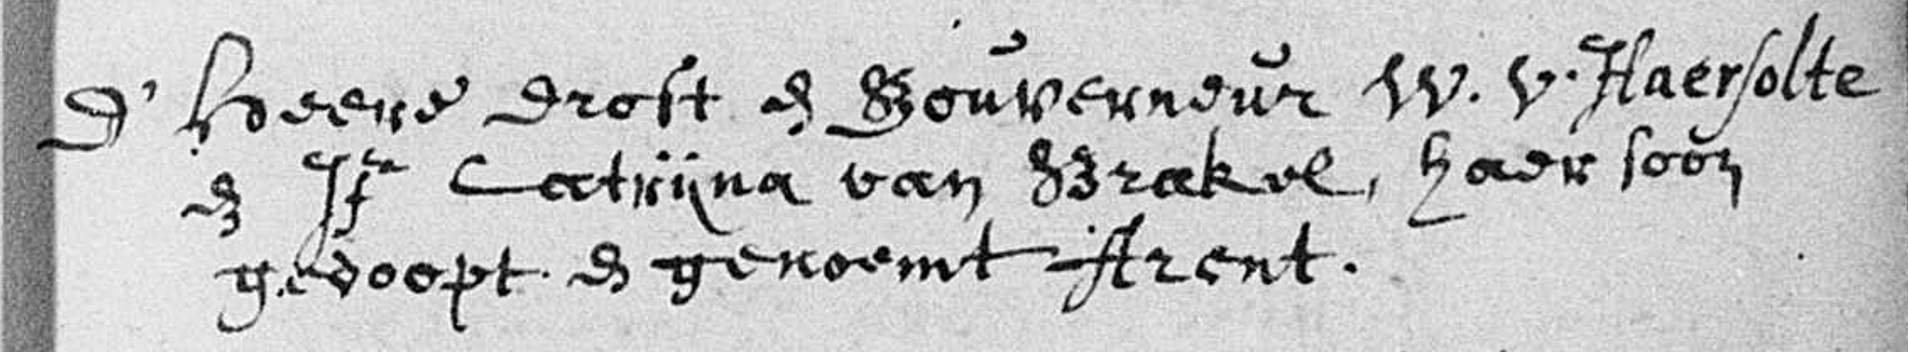 D' Heere Drost en Gouverneur W. v. Haersolte
en Jfr Catrijna van Brakel, haer soon
gedoopt. en genoemt Arent.